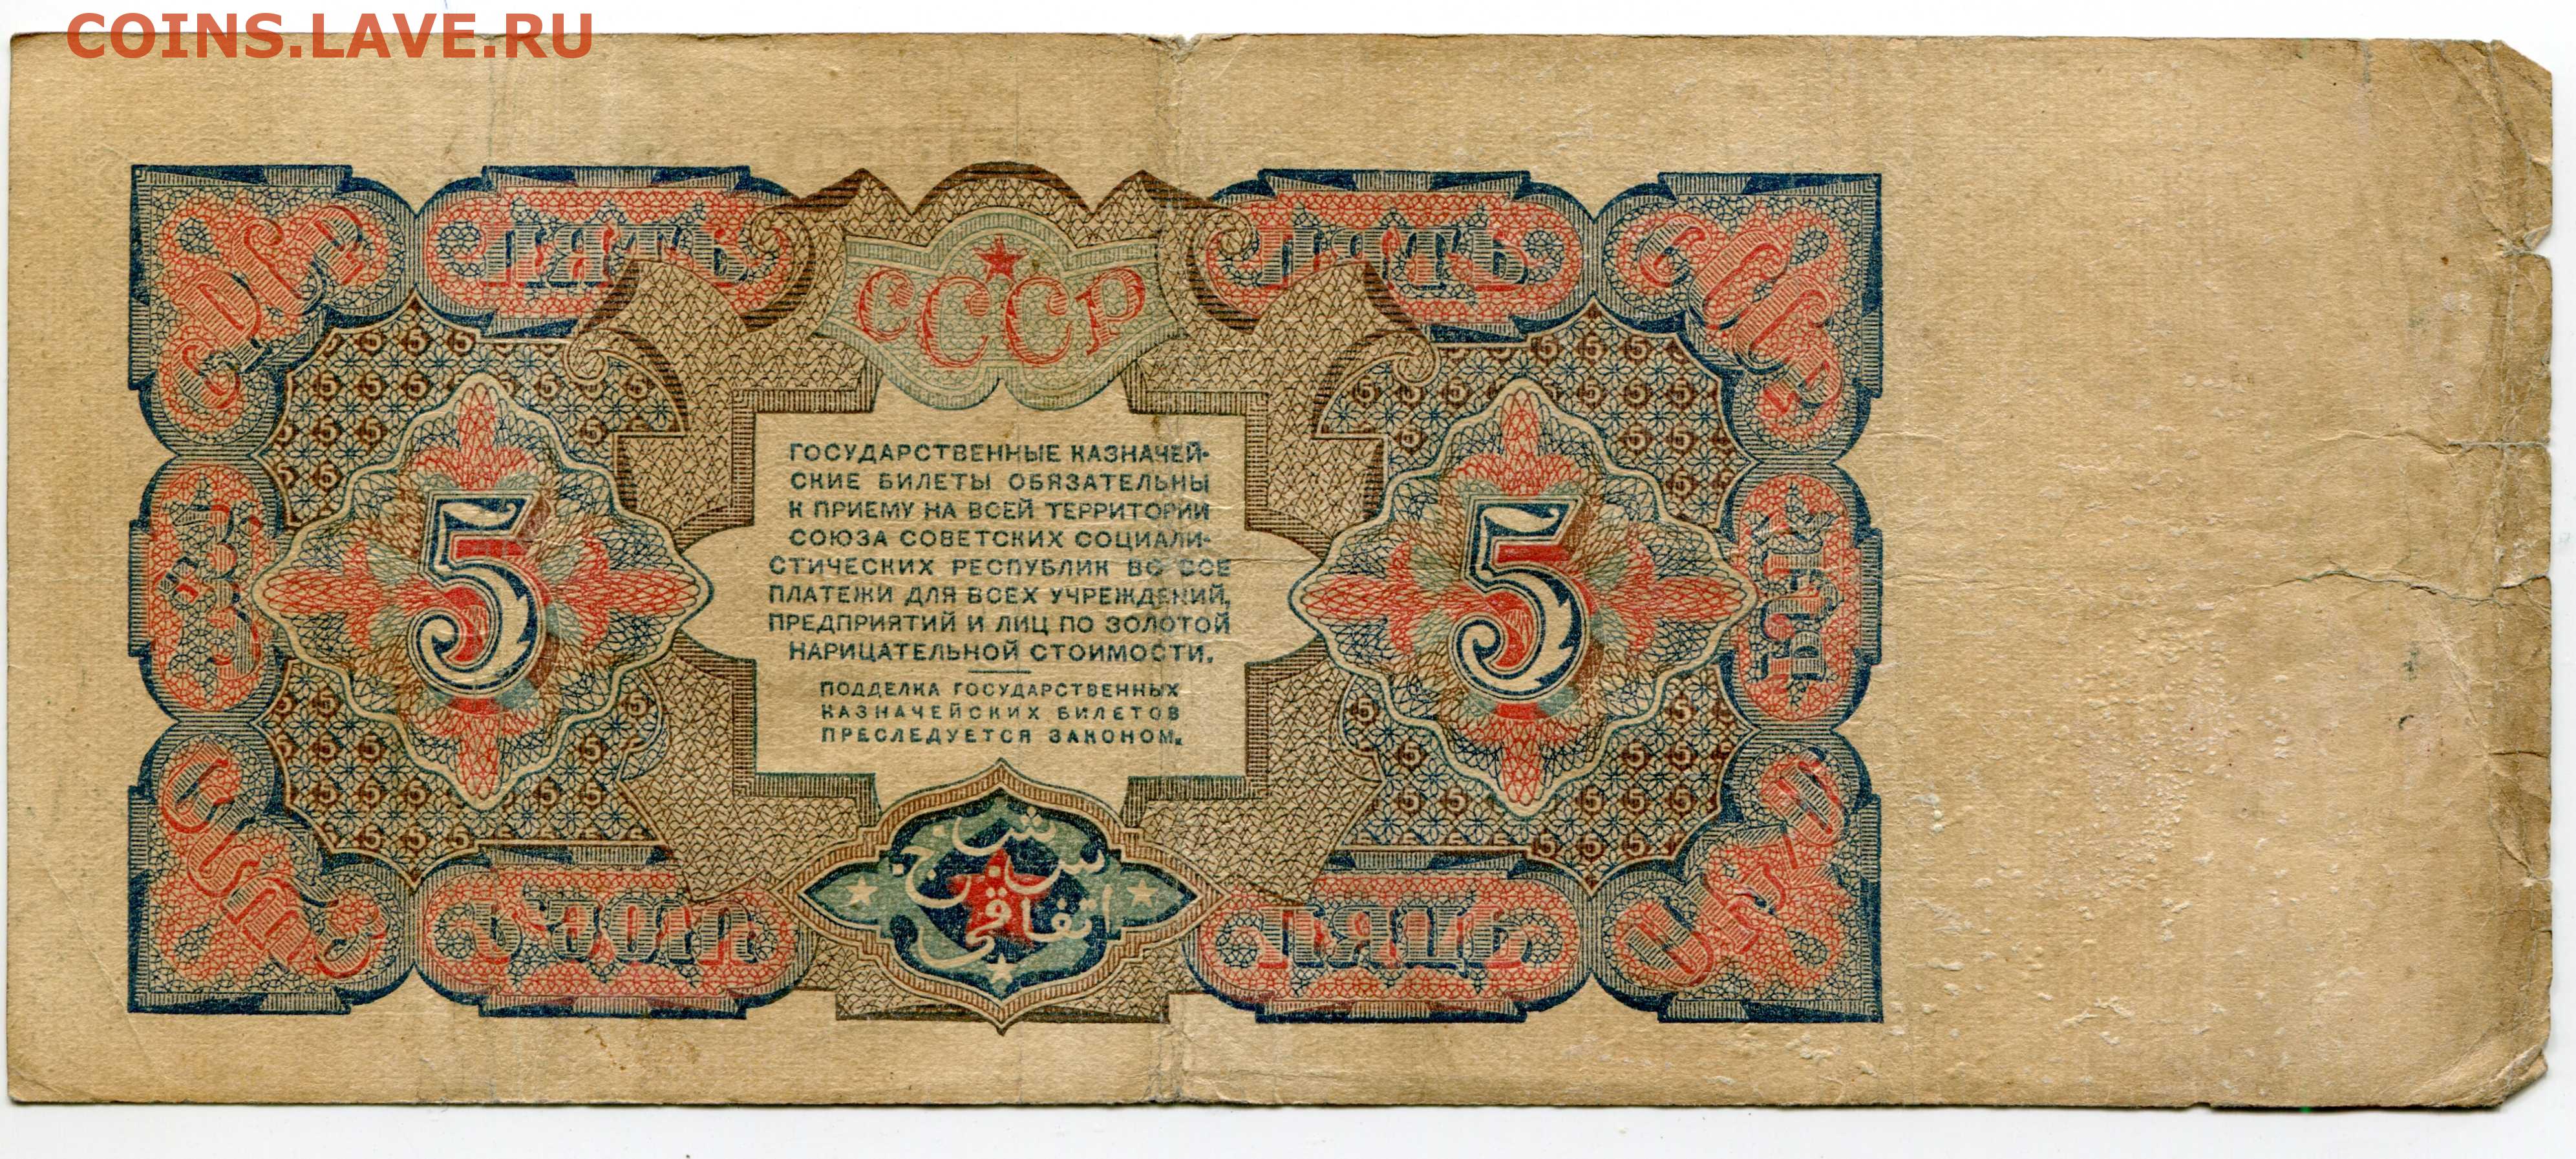 COINS.LAVE.RU
ПЯТЬ
ПЯТЬ
СССР
5
5
ГОСУДАРСТВЕННЫЕ КАЗНАЧЕЙ-
СКИЕ БИЛЕТЫ ОБЯЗАТЕЛЬНЫ
К ПРИЕМУ НА ВСЕЙ ТЕРРИТОРИИ
СОЮЗА СОВЕТСКИХ СОЦИАЛИ-
СТИЧЕСКИХ РЕСПУБЛИК ВО ВСЕ
ПЛАТЕЖИ ДЛЯ ВСЕХ УЧРЕЖДЕНИЙ,
ПРЕДПРИЯТИЙ И ЛИЦ ПО ЗОЛОТОЙ
НАРИЦАТЕЛЬНОЙ СТОИМОСТИ.
ПОДДЕЛКА ГОСУДАРСТВЕННЫХ
КАЗНАЧЕЙСКИХ БИЛЕТОВ
ПРЕСЛЕДУЕТСЯ ЗАКОНОМ.
اتفاقى